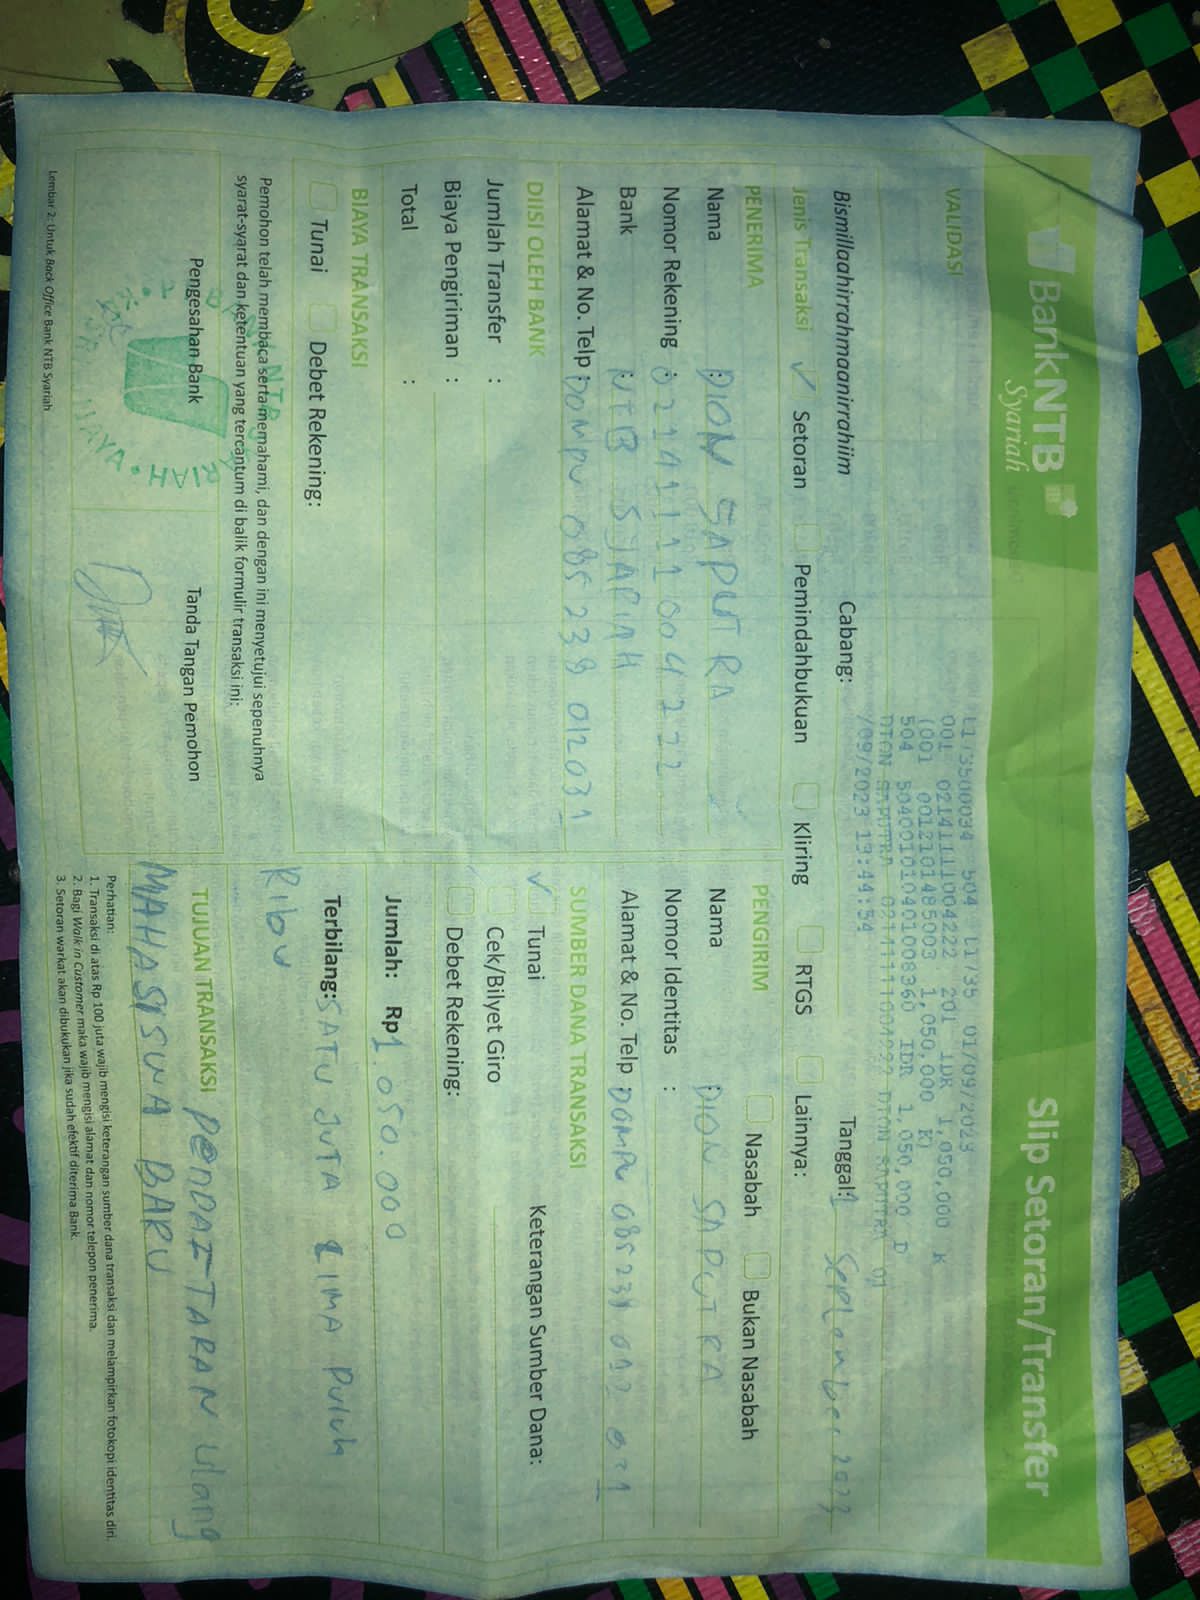 BankNTB
Syariah
Slip Setoran/Transfer
VALIDASI
L173500034 504 L1735 01/09/2023
001 0214111004222 201 IDR 1,050,000 K
(001 0012101485003 1,050,000 K)
504 504001010401008360 IDR 1,050,000 D
DION SAPUTRA 0214111004222 DION SAPUTRA 01
/09/2023 13:44:54
Bismillaahirrahmaanirrahiim
Cabang:
Tanggal: 1 September 2023
Jenis Transaksi ✓ Setoran Pemindahbukuan Kliring RTGS Lainnya:
PENERIMA
Nama : DION SAPUTRA
Nomor Rekening : 0214111004222
Bank : NTB SYARIAH
Alamat & No. Telp : DOMPU 085 239 012 031
PENGIRIM Nasabah Bukan Nasabah
Nama : DION SAPUTRA
Nomor Identitas :
Alamat & No. Telp : DOMPU 085 239 012 031
DIISI OLEH BANK
Jumlah Transfer :
Biaya Pengiriman :
Total :
SUMBER DANA TRANSAKSI
✓ Tunai Keterangan Sumber Dana:
Cek/Bilyet Giro
Debet Rekening:
BIAYA TRANSAKSI
Tunai Debet Rekening:
Jumlah: Rp 1.050.000
Terbilang: SATU JUTA LIMA PULUH
RIBU
Pemohon telah membaca serta memahami, dan dengan ini menyetujui sepenuhnya
syarat-syarat dan ketentuan yang tercantum di balik formulir transaksi ini:
Pengesahan Bank
Tanda Tangan Pemohon
TUJUAN TRANSAKSI PENDAFTARAN Ulang
MAHASISWA BARU
Perhatian:
1. Transaksi di atas Rp 100 juta wajib mengisi keterangan sumber dana transaksi dan melampirkan fotokopi identitas diri.
2. Bagi Walk in Customer maka wajib mengisi alamat dan nomor telepon penerima.
3. Setoran warkat akan dibukukan jika sudah efektif diterima Bank.
Lembar 2: Untuk Back Office Bank NTB Syariah